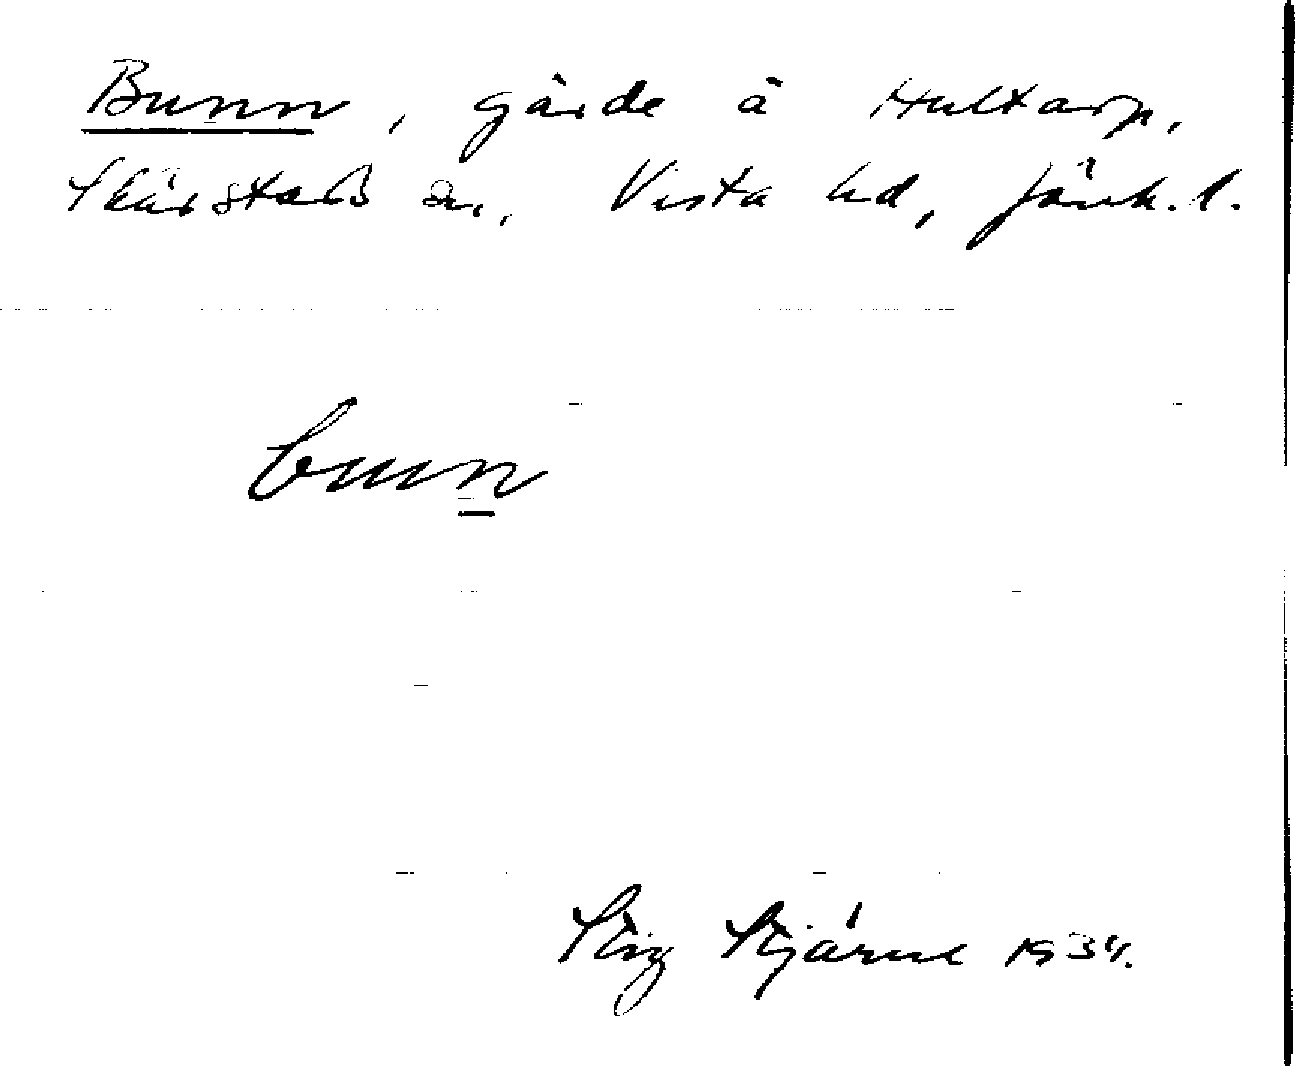 Bunn, gärde å Hultarp,
Skärstads sn, Vista hd, Jönk. l.
bunn
Stig Stjärne 1934.